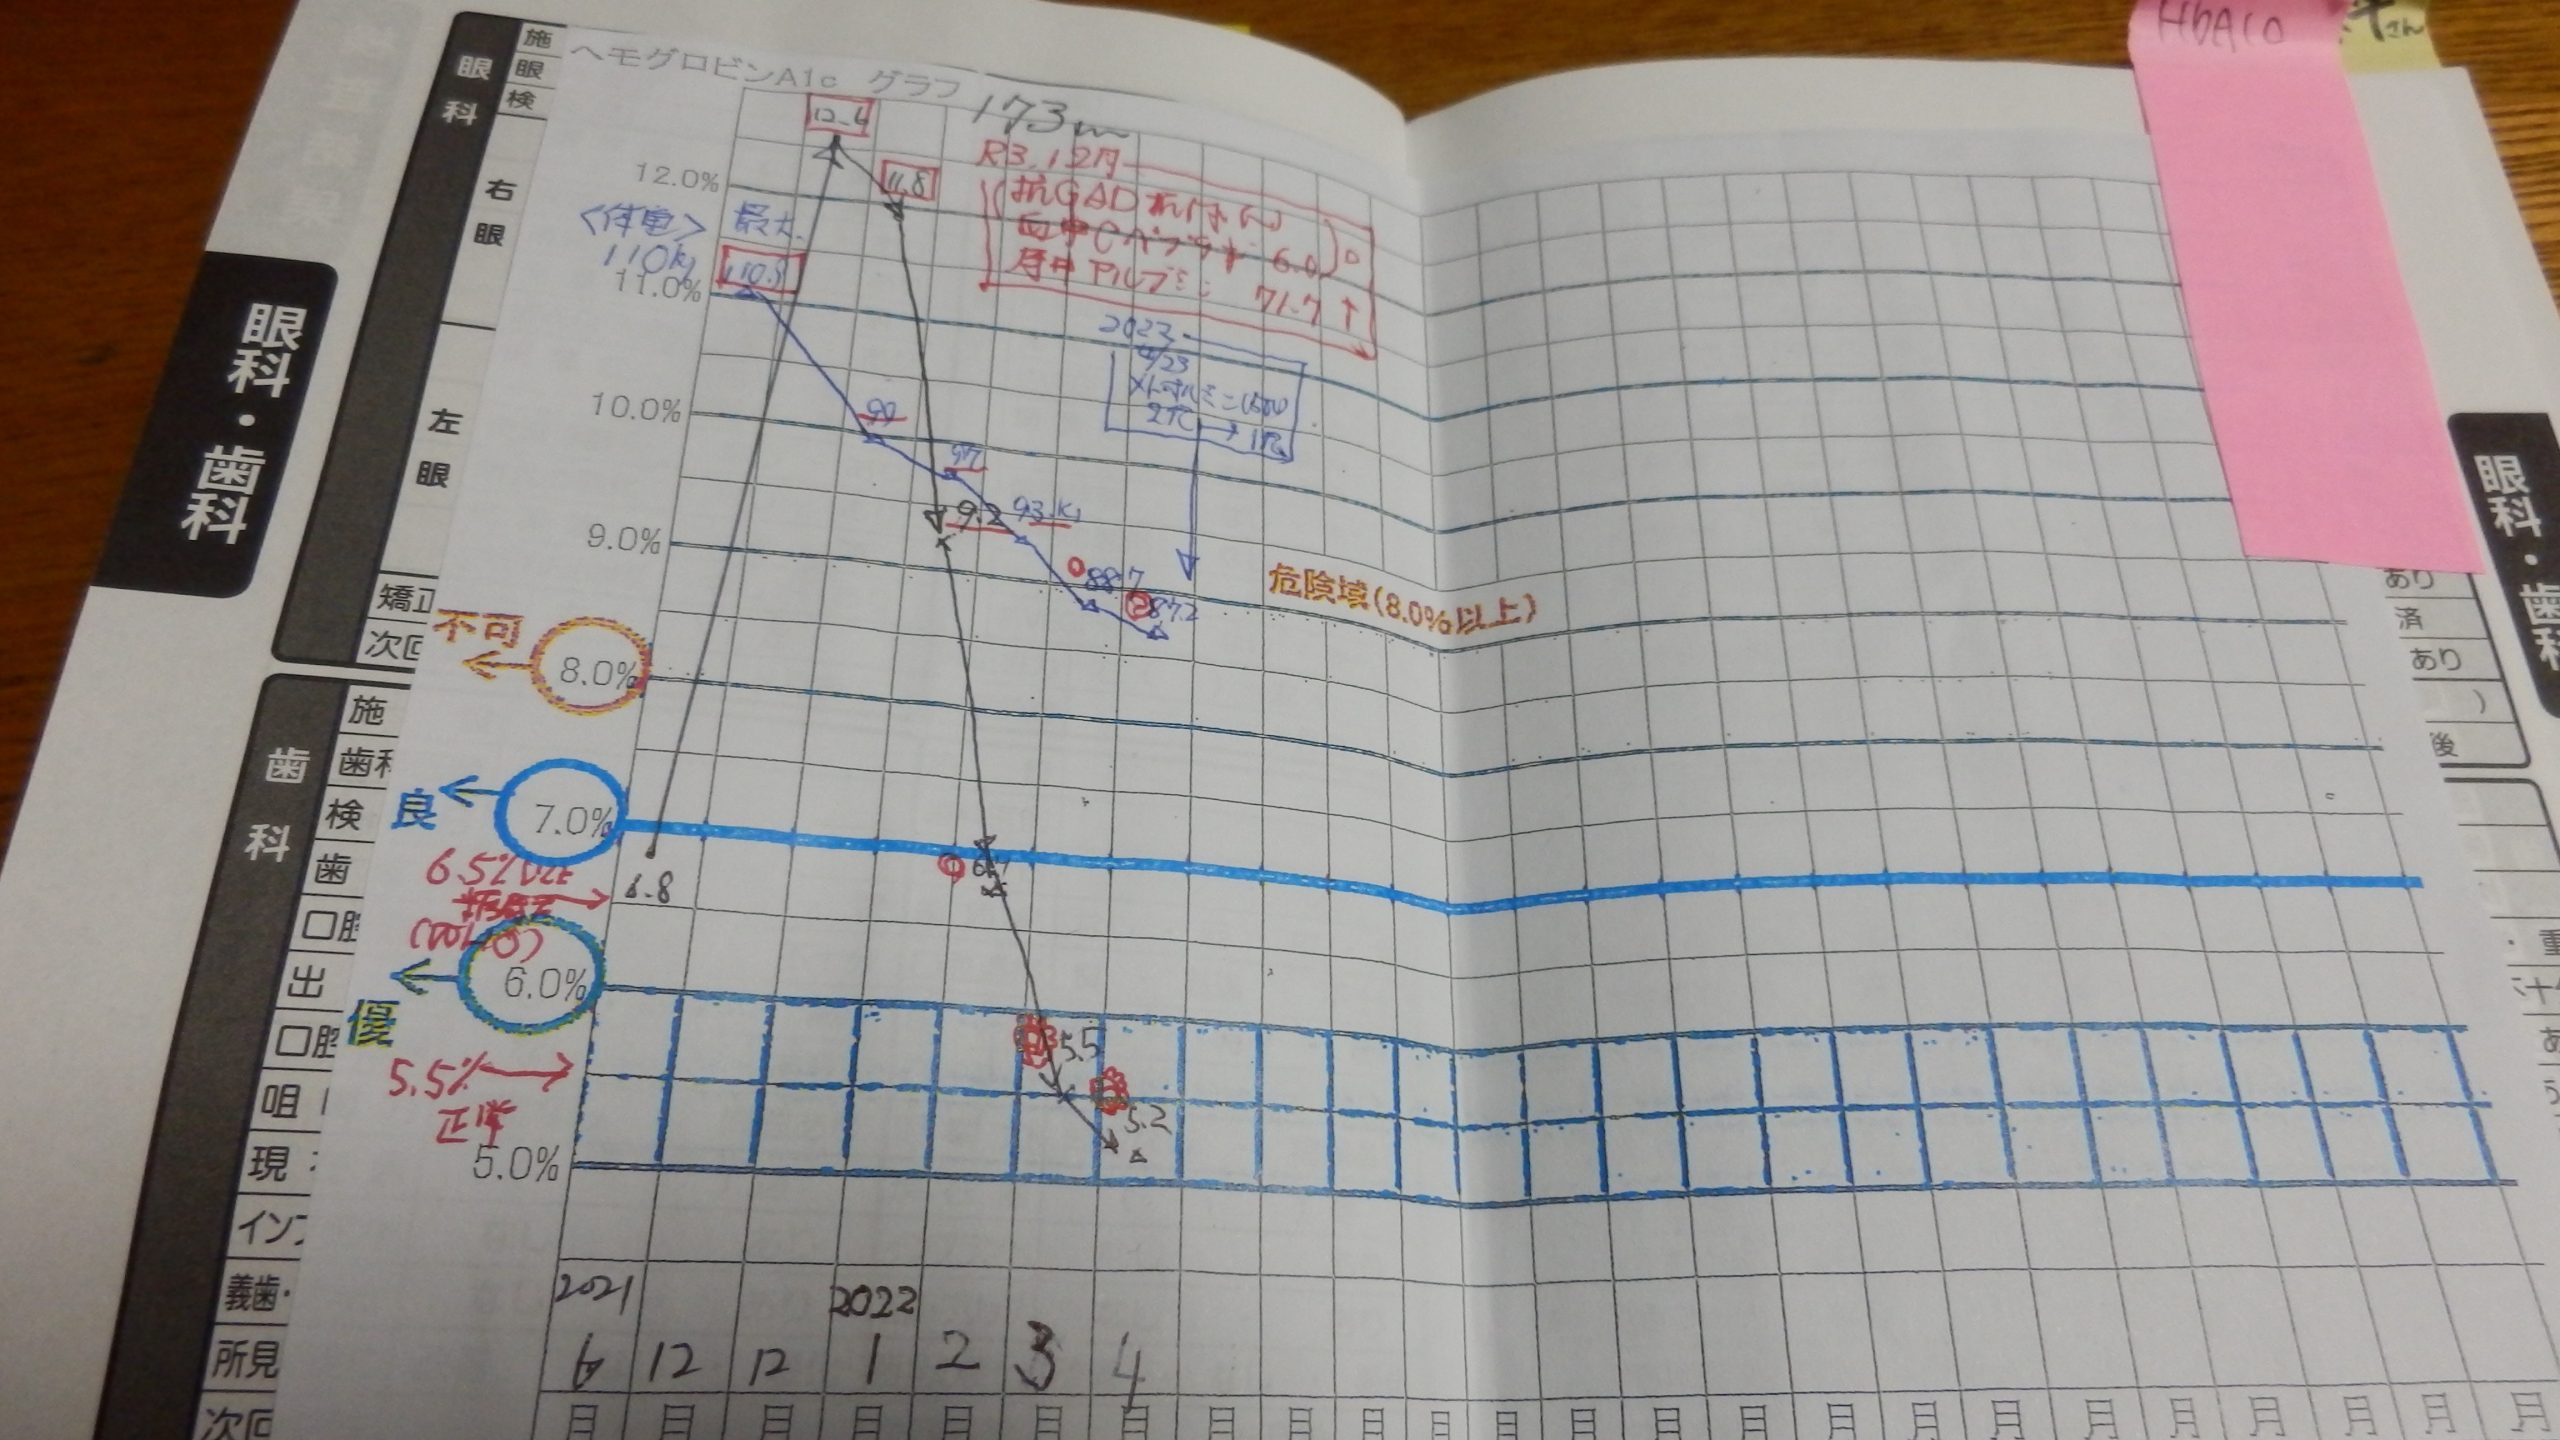 HbA1c
さん
眼科・歯科
眼科
施
眼
検
右眼
左眼
矯正
次回
歯科
施
歯科
検
歯
口腔
出
口腔
咀
現
イン
義歯・
所見
次回
ヘモグロビンA1c グラフ
173cm
12.6
11.8
R3.12月
抗GAD抗体(-)
血中Cペプチド 6.0
尿中アルブミン 71.7↑
12.0%
<体重> 最大
110kg
110.5
11.0%
2023
4/23
メトホルミン(500)
2T→1T
10.0%
99
97
9.2
93.kg
9.0%
88.7
②87.2
危険域(8.0%以上)
不可
8.0%
良
7.0%
① 6.7
6.5%以上
糖尿病
6.8
6.0%
優
5.5
5.5%→
正常
5.2
5.0%
2021
2022
6 12 12 1 2 3 4
月 月 月 月 月 月 月 月 月 月 月 月 月 月 月 月 月 月 月 月 月 月 月 月
眼科・歯科
あり
済
あり
)
後